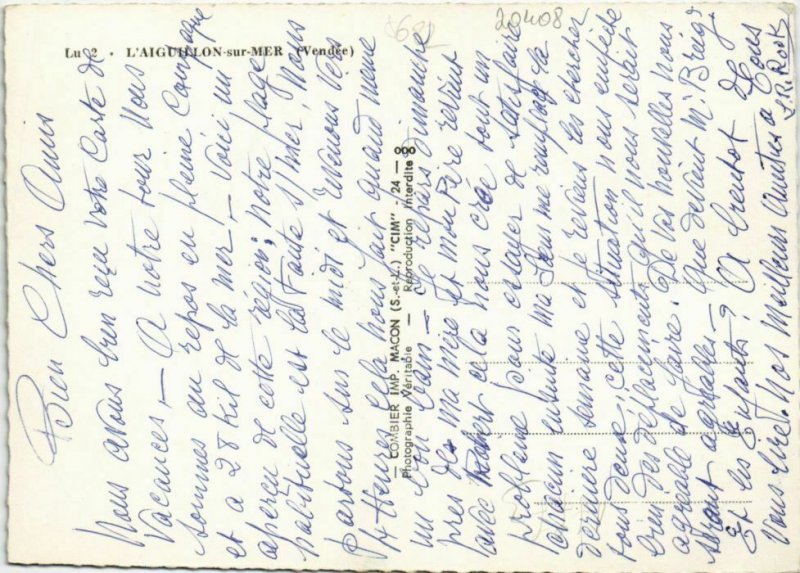 Lu
L'AIGUILLON-sur-MER (Vendée)
20408
COMBIER IMP. MACON (S.-et-L.) "CIM" - 24 - 000
Photographie Véritable — Reproduction Interdite
Bien Chers Amis
Nous avons bien reçu votre Carte de
Vacances. — A notre tour nous
sommes au repos en pleine Campagne
et a 28 Kil de la mer. — Voici un
aperçu de cette région, notre plage
habituelle est La Faute s/mer, nous
partons sur le midi et revenons vers
cela nous fait quand même
un bon bain — Je repars dimanche
près de ma mère et mon Père revient
avec Robert cela nous crée tout un
problème pour essayer de satisfaire
chacun ensuite ma me remplace la
dernière semaine et je reviens les chercher
tous deux, cette situation nous
bien des déplacements qu'il nous serait
agréable de faire. De vos nouvelles nous
seront agréables — Que devient Mr
Et les Enfants? A bientôt de
vous lire. Nos meilleures amitiés a tous